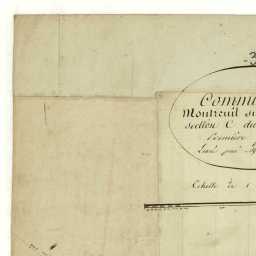 Commu
Montreuil su
section C du
Première
Levé par
Echelle de 1